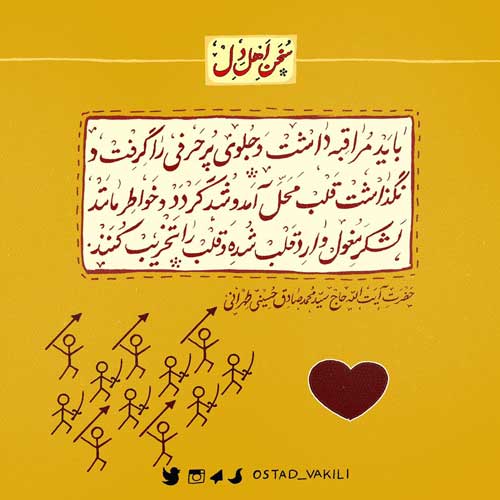 سخن اهل دل
باید مراقبه داشت و جلوی پرحرفی را گرفت و
نگذاشت قلب محل آمد و شد گردد و خواطر مانند
لشکر مغول وارد قلب شده و قلب را تخریب کنند.
حضرت آیت الله حاج سید محمد صادق حسینی طهرانی
OSTAD_VAKILI